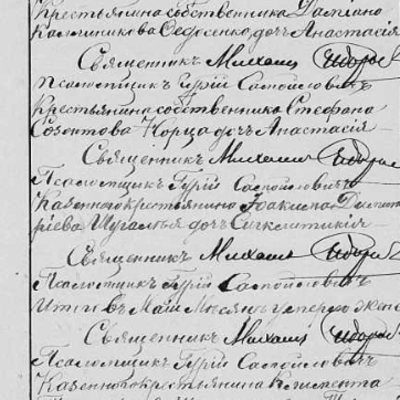 Крестьянина собственника Дамiана
Калинникова Федосенко дочь Анастасiя
Священникъ Михаил
Псаломщикъ Гурiй Самойловичъ
Крестьянина собственника Стефана
Созонтова Корца дочь Анастасiя
Священникъ Михаил
Псаломщикъ Гурiй Самойловичъ
Казеннокрестьянина Iоакима Димит
рiева дочь Сигклитикiя
Священникъ Михаил
Псаломщикъ Гурiй Самойловичъ
Итого въ Маѣ Мѣсяцѣ умерло жен
Священникъ Михаил
Псаломщикъ Гурiй Самойловичъ
Казеннокрестьянина Климента